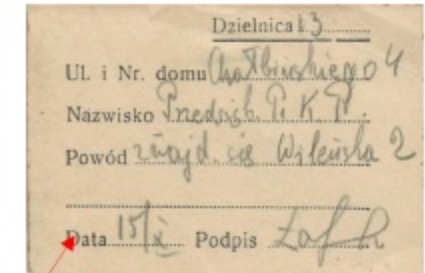 Dzielnica 13
Ul. i Nr. domu Chałbińskiego 4
Nazwisko Przedsięb. P. K. P.
Powód znajd. się Wileńska 2
Data 15/X Podpis